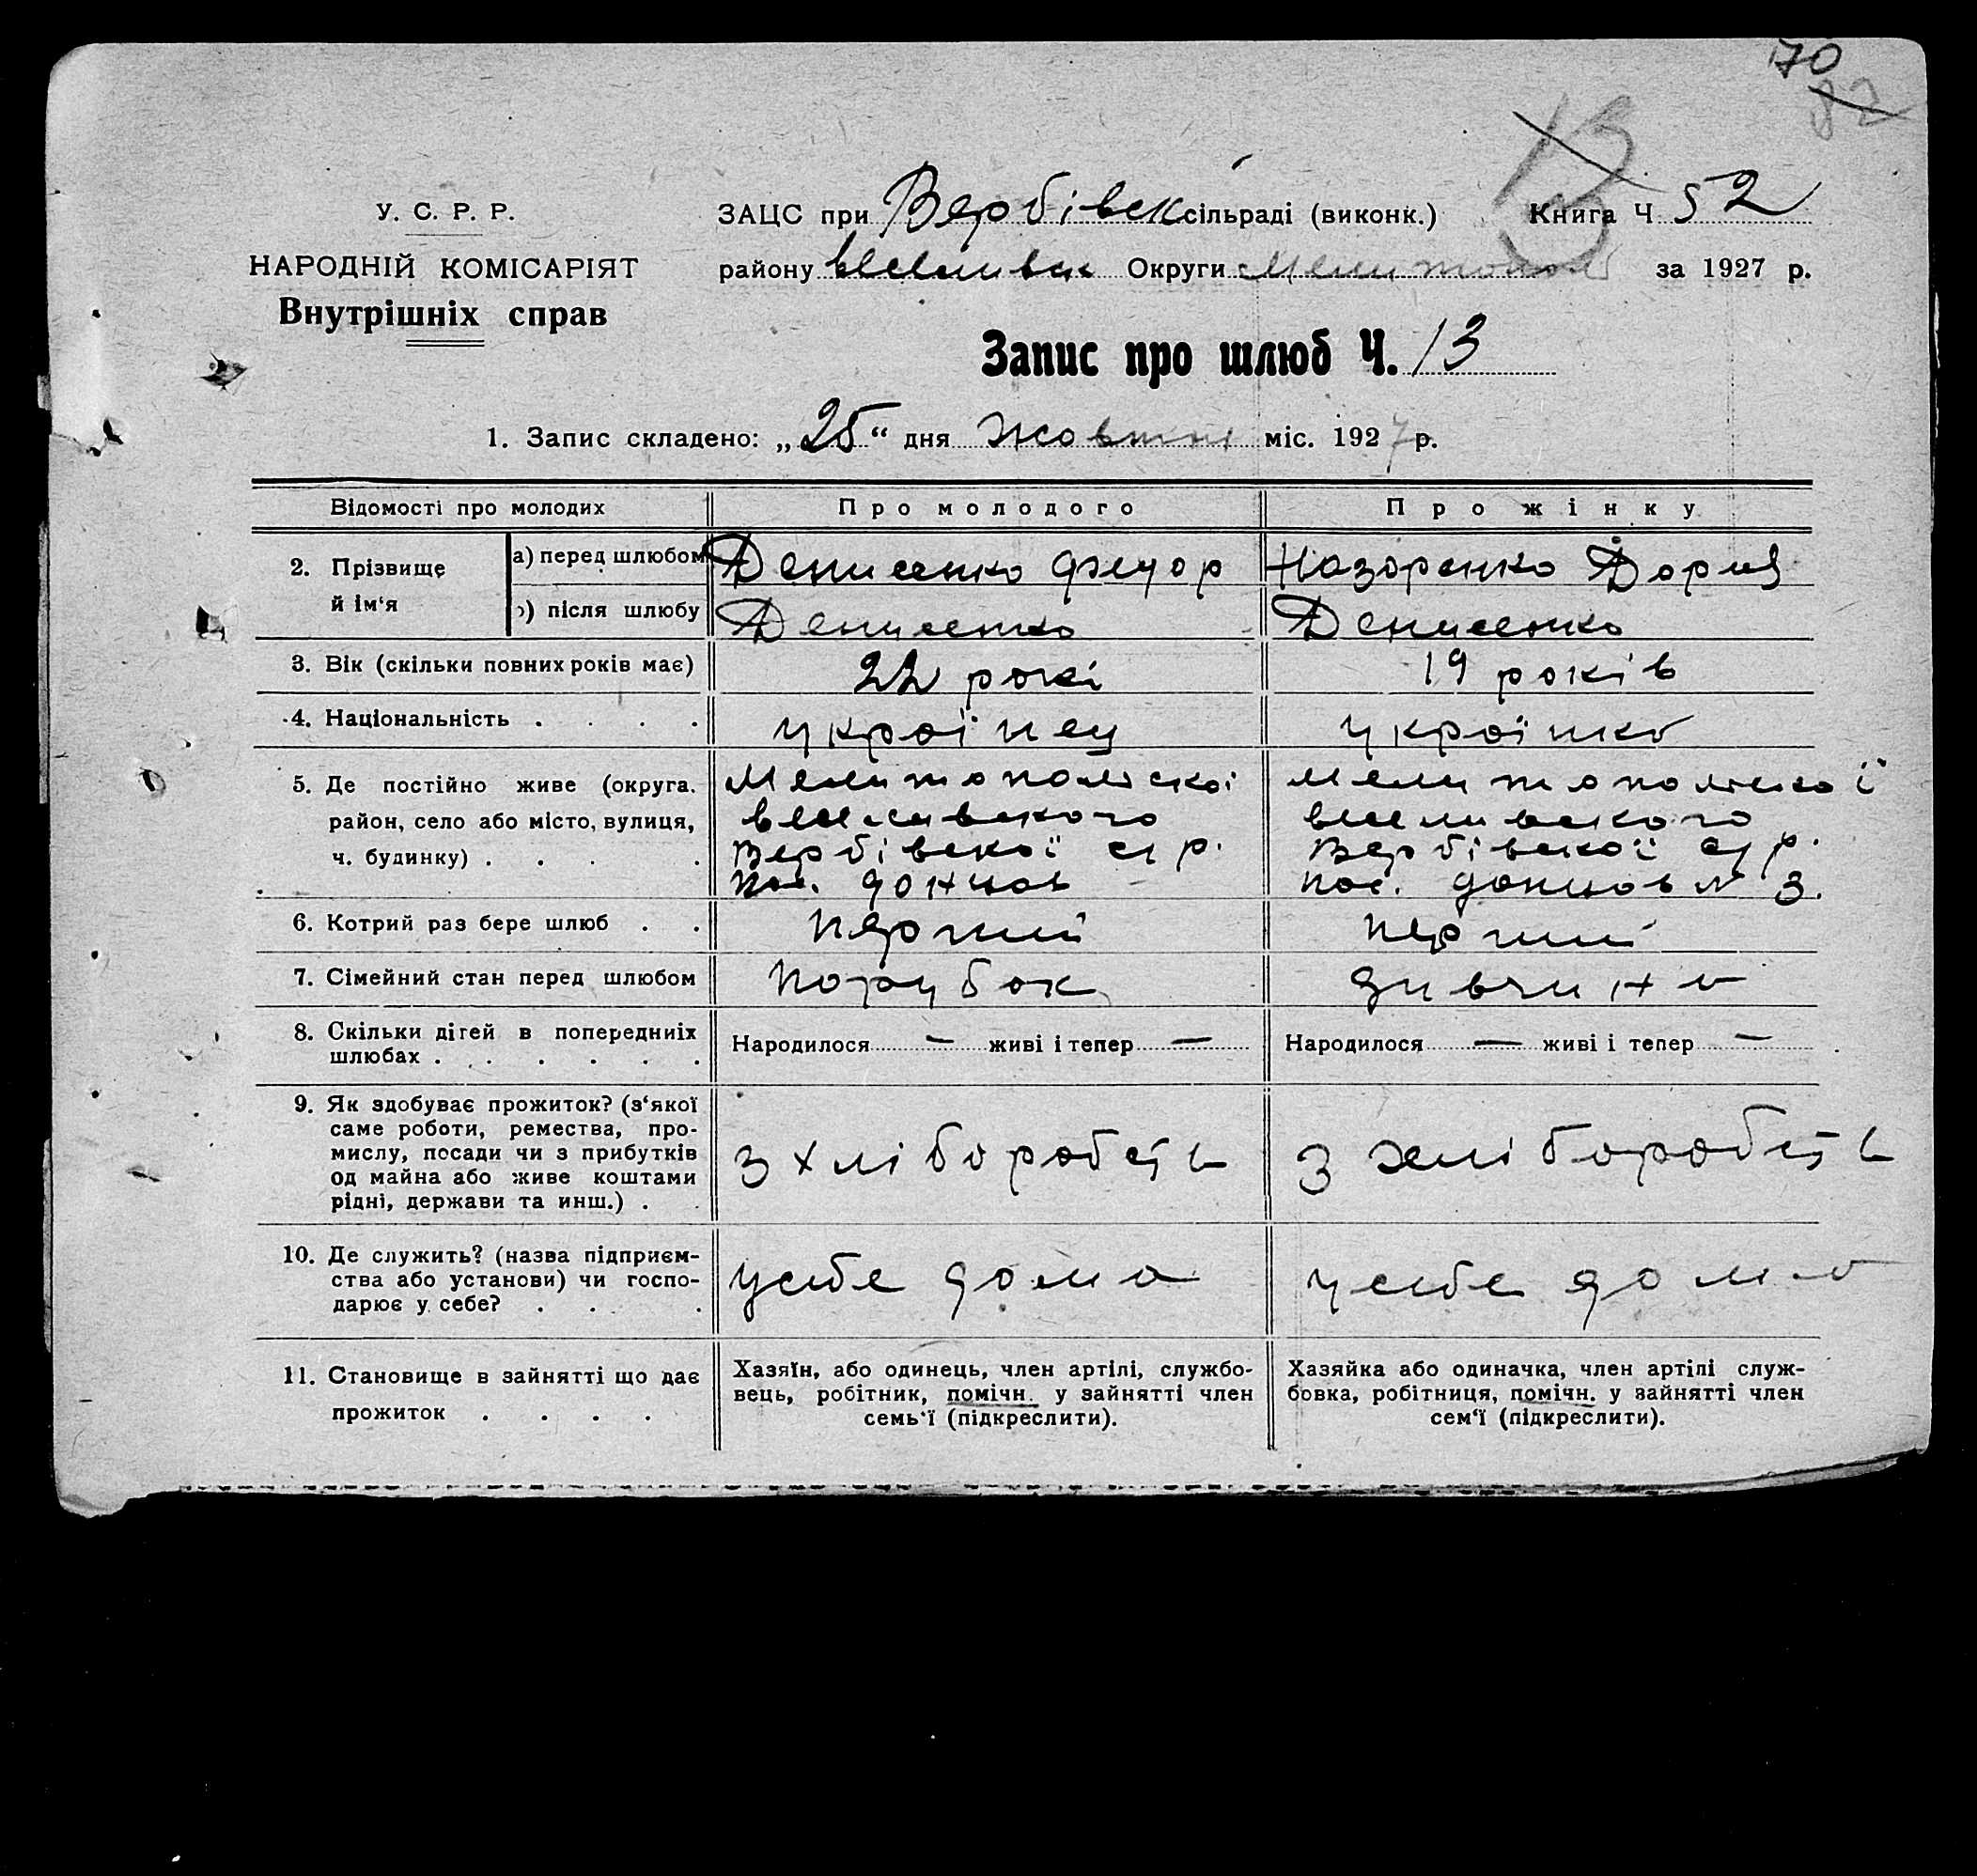 70
82
13
У. С. Р. Р.
НАРОДНІЙ КОМІСАРІЯТ
Внутрішніх справ
ЗАЦС при Вербівск сільраді (виконк.) Книга Ч 52
району Округи Мелитополь за 1927 р.
Запис про шлюб Ч. 13
1. Запис складено: „25“ дня Жовтня міс. 1927 р.
Відомості про молодих Про молодого Про жінку
2. Прізвище й ім‘я а) перед шлюбом Денисенко Федор Назаренко Дария
) після шлюбу Денисенко Денисенко
3. Вік (скільки повних років має) 22 рокі 19 років
4. Національність . . . . українец українка
5. Де постійно живе (округа. Мелитопольскоі мелитопольскоі
район, село або місто, вулиця, Вербівскоі с/р. Вербівскоі с/р.
ч. будинку) . . . . пос. донцов пос. донцов № 3.
6. Котрий раз бере шлюб . . перший перший
7. Сімейний стан перед шлюбом Парубок дивчина
8. Скільки дітей в попередниіх Народилося — живі і тепер — Народилося — живі і тепер —
шлюбах . . . . . .
9. Як здобуває прожиток? (з‘якої
саме роботи, ремества, про-
мислу, посади чи з прибутків з хліборобств з хліборобств
од майна або живе коштами
рідні, держави та инш.) . .
10. Де служить? (назва підприєм-
ства або установи) чи госпо- усибе дома усибе дома
дарює у себе? . . . .
11. Становище в зайнятті що дає Хазяїн, або одинець, член артілі, службо- Хазяйка або одиначка, член артілі служ-
прожиток . . . . вець, робітник, помічн. у зайнятті член бовка, робітниця, помічн. у зайнятті член
семь‘ї (підкреслити). сем‘ї (підкреслити).